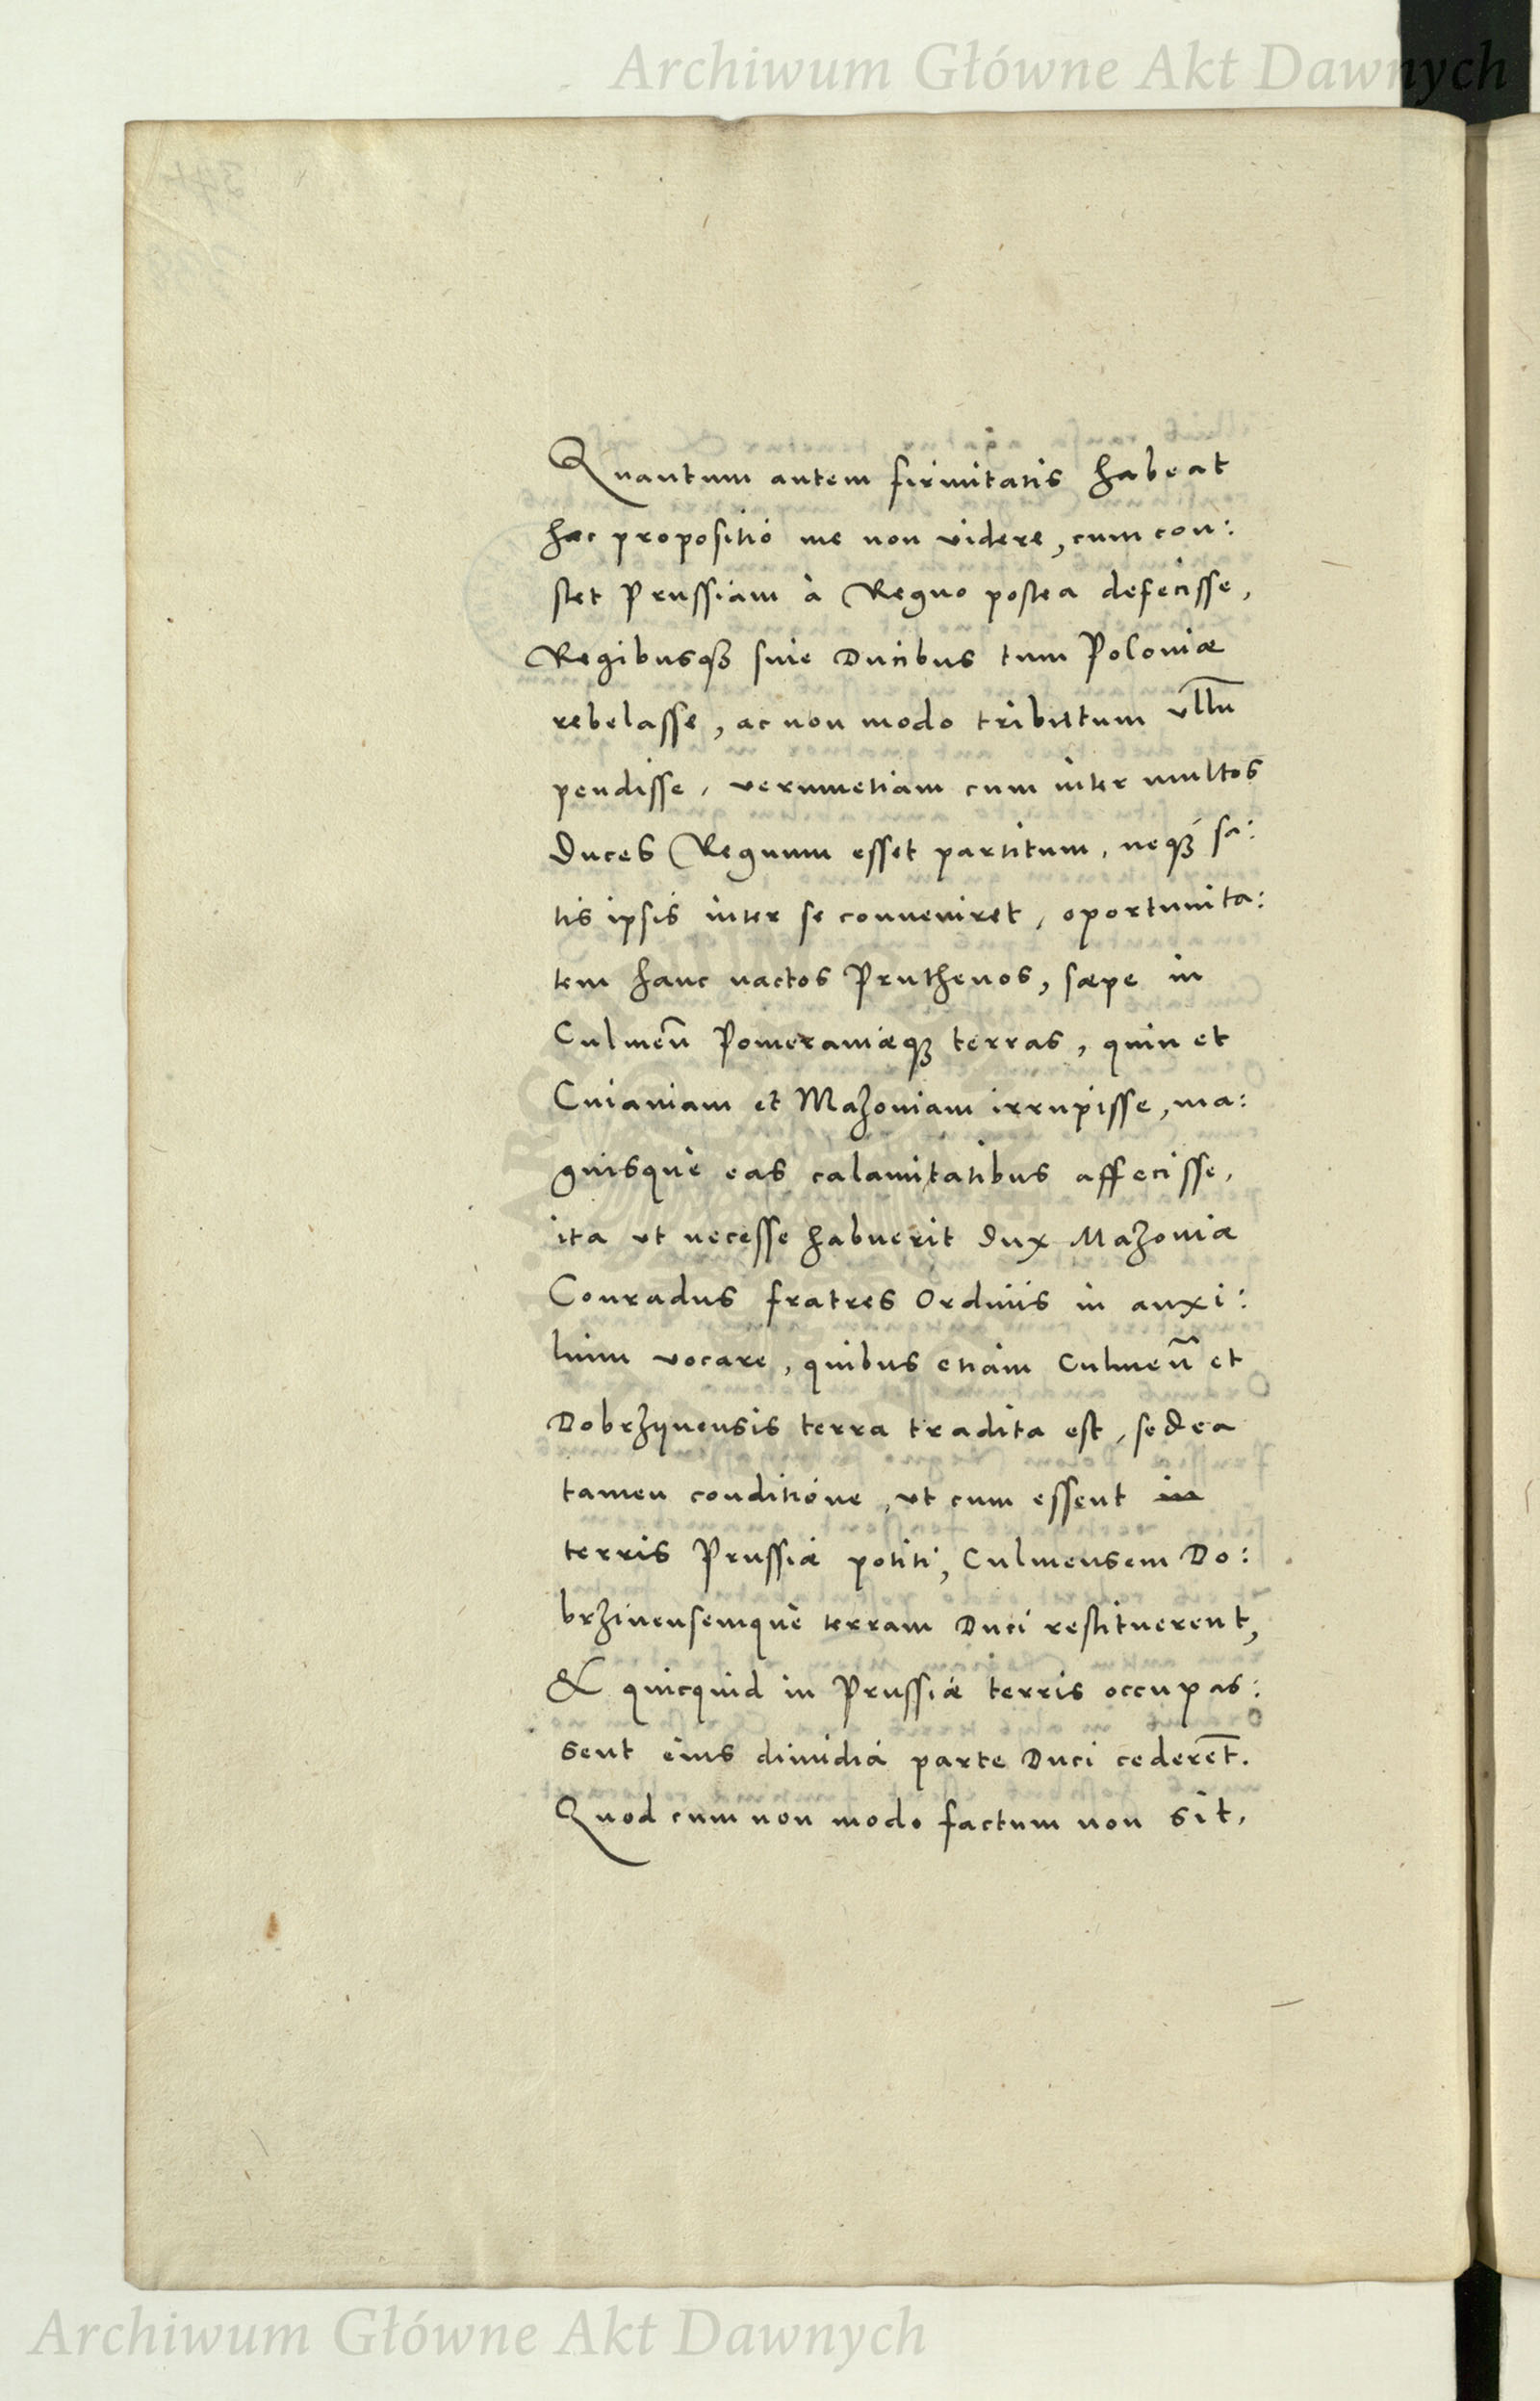 Archiwum Główne Akt Dawnych
Quantum autem firmitatis habeat
hæc propositio me non videre, cum con:
stet Prussiam à Regno postea defecisse,
Regibusqꝫ siue Ducibus tum Poloniæ
rebelasse, ac non modo tributum vllū
pendisse, verumetiam cum inter multos
Duces Regnum esset partitum, neqꝫ sa:
tis ipsis inter se conueniret, oportunita:
tem hanc nactos Pruthenos, sæpe in
Culmeñ Pomeraniæqꝫ terras, quin et
Cuiauiam et Mazouiam irrupisse, ma:
gnisque eas calamitatibus affecisse,
ita vt necesse habuerit Dux Mazouiæ
Conradus fratres Ordinis in auxi:
lium vocare, quibus etiam Culmeñ et
Dobrzynensis terra tradita est, sed ea
tamen conditione, vt cum essent in
terris Prussiæ potiti, Culmensem Do:
brzinensemque terram Duci restituerent,
& quicquid in Prussiæ terris occupas:
sent eius dimidia parte Duci cederēt.
Quod cum non modo factum non sit,
Archiwum Główne Akt Dawnych